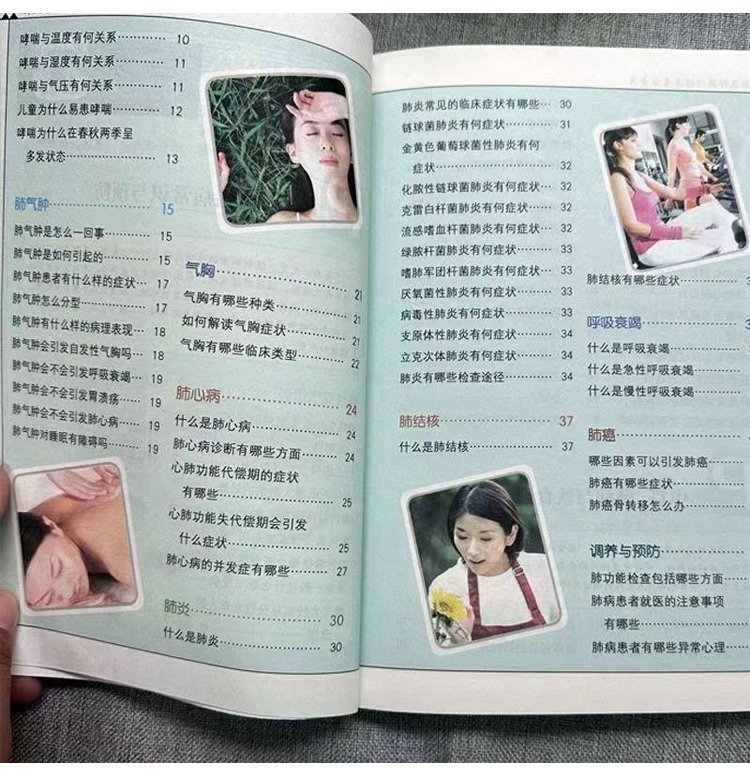 哮喘与温度有何关系………… 10
哮喘与湿度有何关系………… 11
哮喘与气压有何关系………… 11
儿童为什么易患哮喘………… 12
哮喘为什么在春秋两季呈
多发状态………………… 13
肺气肿………………… 15
肺气肿是怎么一回事………… 15
肺气肿是如何引起的………… 15
肺气肿患者有什么样的症状… 17
肺气肿怎么分型……………… 17
肺气肿有什么样的病理表现… 18
肺气肿会引发自发性气胸吗… 18
肺气肿会不会引发呼吸衰竭… 19
肺气肿会不会引发胃溃疡…… 19
肺气肿会不会引发肺心病…… 19
肺气肿对睡眠有障碍吗……… 19
气胸………………… 21
气胸有哪些种类…………… 21
如何解读气胸症状………… 21
气胸有哪些临床类型……… 22
肺心病………………… 24
什么是肺心病……………… 24
肺心病诊断有哪些方面…… 24
心肺功能代偿期的症状
有哪些………………… 25
心肺功能失代偿期会引发
什么症状……………… 25
肺心病的并发症有哪些…… 27
肺炎………………… 30
什么是肺炎………………… 30
肺炎常见的临床症状有哪些… 30
链球菌肺炎有何症状………… 31
金黄色葡萄球菌性肺炎有何
症状…………………… 32
化脓性链球菌肺炎有何症状… 32
克雷白杆菌肺炎有何症状…… 32
流感嗜血杆菌肺炎有何症状… 32
绿脓杆菌肺炎有何症状……… 33
嗜肺军团杆菌肺炎有何症状… 33
厌氧菌性肺炎有何症状……… 33
病毒性肺炎有何症状………… 33
支原体性肺炎有何症状……… 34
立克次体肺炎有何症状……… 34
肺炎有哪些检查途径………… 34
肺结核………………… 37
什么是肺结核……………… 37
肺结核有哪些症状…………
呼吸衰竭…………………
什么是呼吸衰竭……………
什么是急性呼吸衰竭………
什么是慢性呼吸衰竭………
肺癌…………………
哪些因素可以引发肺癌……
肺癌有哪些症状……………
肺癌骨转移怎么办…………
调养与预防………………
肺功能检查包括哪些方面…
肺病患者就医的注意事项
有哪些…………………
肺病患者有哪些异常心理…